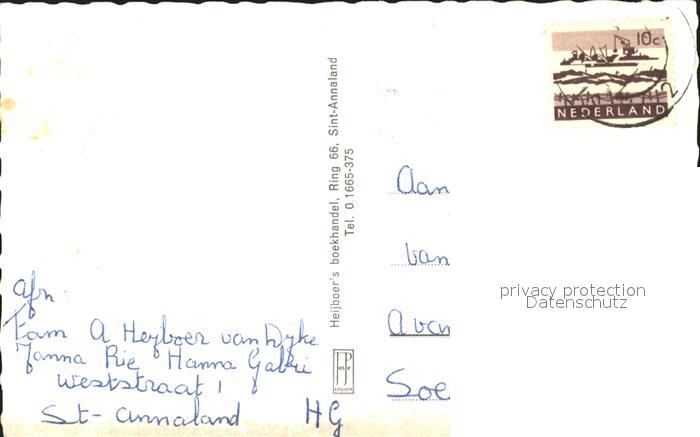 10c
NEDERLAND
2
Heijboer's boekhandel, Ring 66, Sint-Annaland
Tel. 0 1665-375
Aan
van
Avan
Soe
privacy protection
Datenschutz
Afn.
Fam A Heyboer van Dyke
Janna Rie Hanna Gabri
Weststraat 1
St-Annaland HG